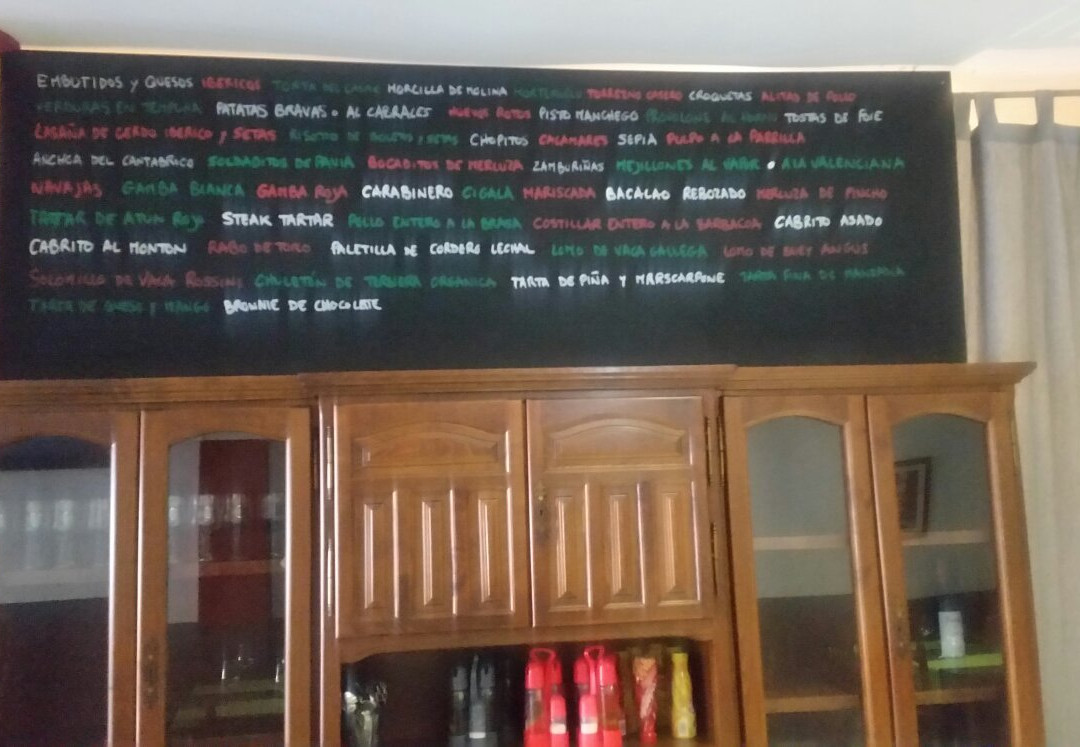 EMBUTIDOS Y QUESOS IBERICOS TORTA DEL CASAR MORCILLA DE MOLINA MORTERUELO TORREZNO CASERO CROQUETAS ALITAS DE POLLO
VERDURAS EN TEMPURA PATATAS BRAVAS O AL CABRALES HUEVOS ROTOS PISTO MANCHEGO PROVOLONE AL HORNO TOSTAS DE FOIE
LASAÑA DE CERDO IBERICO Y SETAS RISOTTO DE BOLETUS Y SETAS CHOPITOS CALAMARES SEPIA PULPO A LA PARRILLA
ANCHOA DEL CANTABRICO SOLDADITOS DE PAVIA BOCADITOS DE MERLUZA ZAMBURIÑAS MEJILLONES AL VAPOR O A LA VALENCIANA
NAVAJAS GAMBA BLANCA GAMBA ROJA CARABINERO CIGALA MARISCADA BACALAO REBOZADO MERLUZA DE PINCHO
TARTAR DE ATUN ROJO STEAK TARTAR POLLO ENTERO A LA BRASA COSTILLAR ENTERO A LA BARBACOA CABRITO ASADO
CABRITO AL MONTON RABO DE TORO PALETILLA DE CORDERO LECHAL LOMO DE VACA GALLEGA LOMO DE BUEY ANGUS
SOLOMILLO DE VACA ROSSINI CHULETÓN DE TERNERA ORGANICA TARTA DE PIÑA Y MARSCARPONE TARTA FINA DE MANZANA
TARTA DE QUESO Y MANGO BROWNIE DE CHOCOLATE